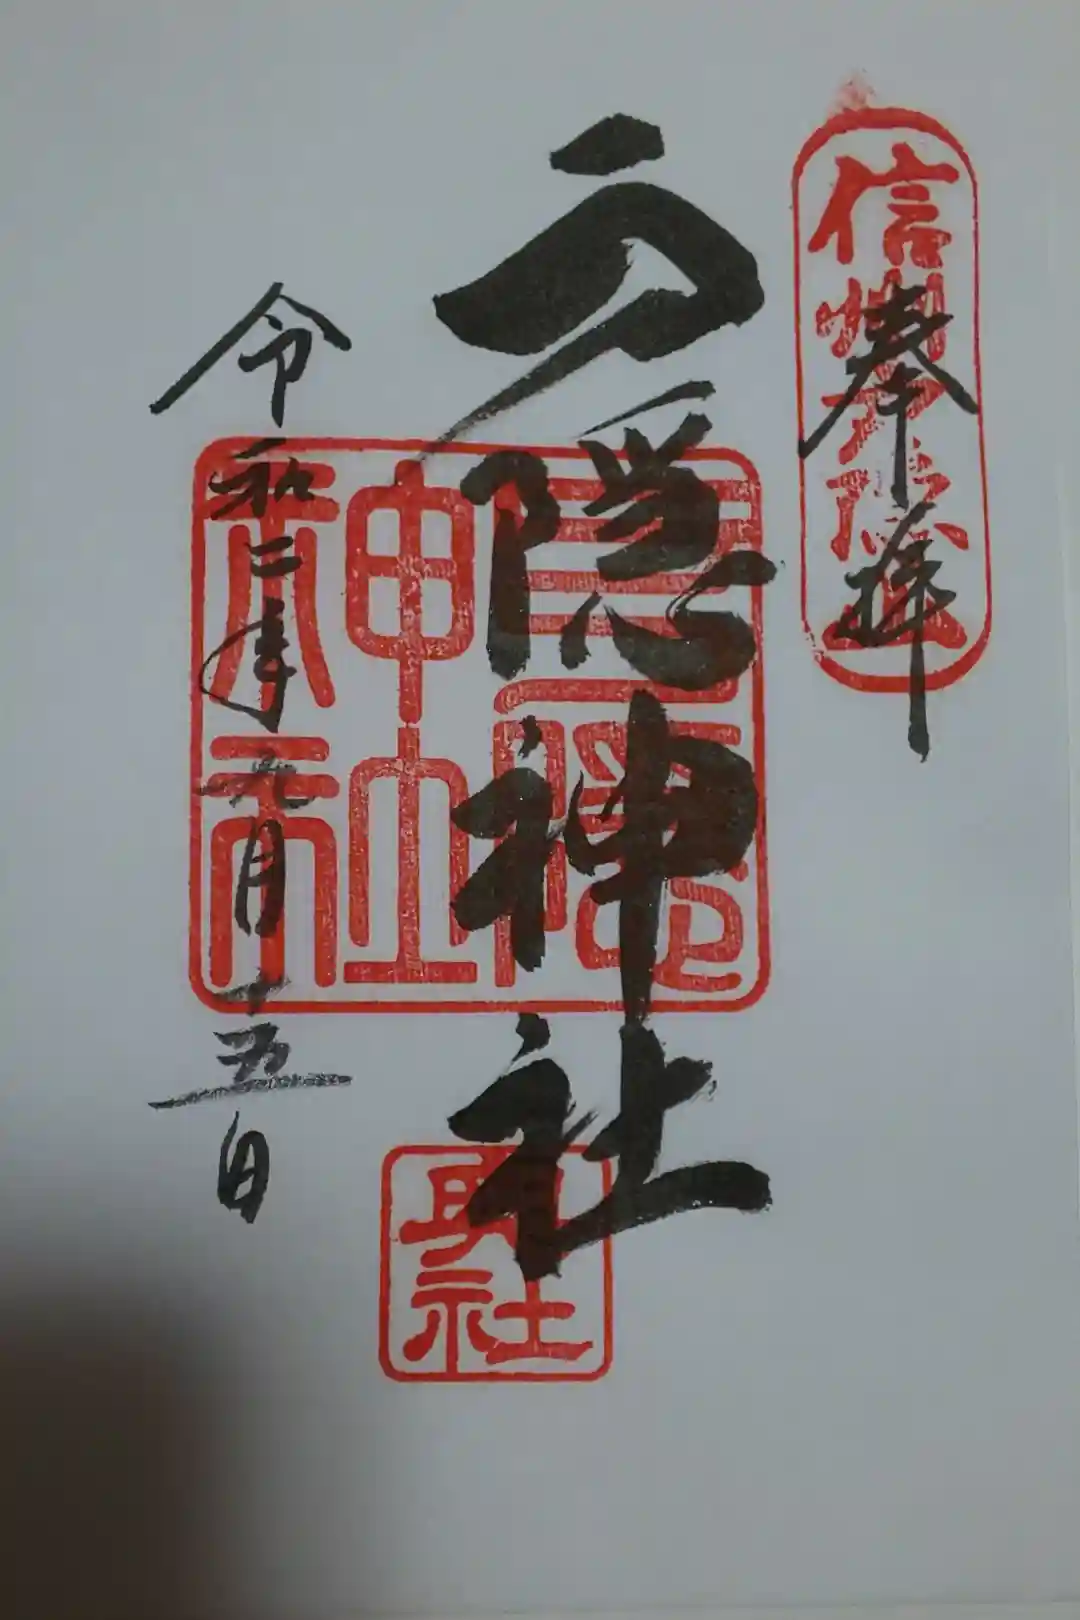 信州戸隠山
奉拝
戸隠神社
戸隠神社
奥社
令和二年九月十五日